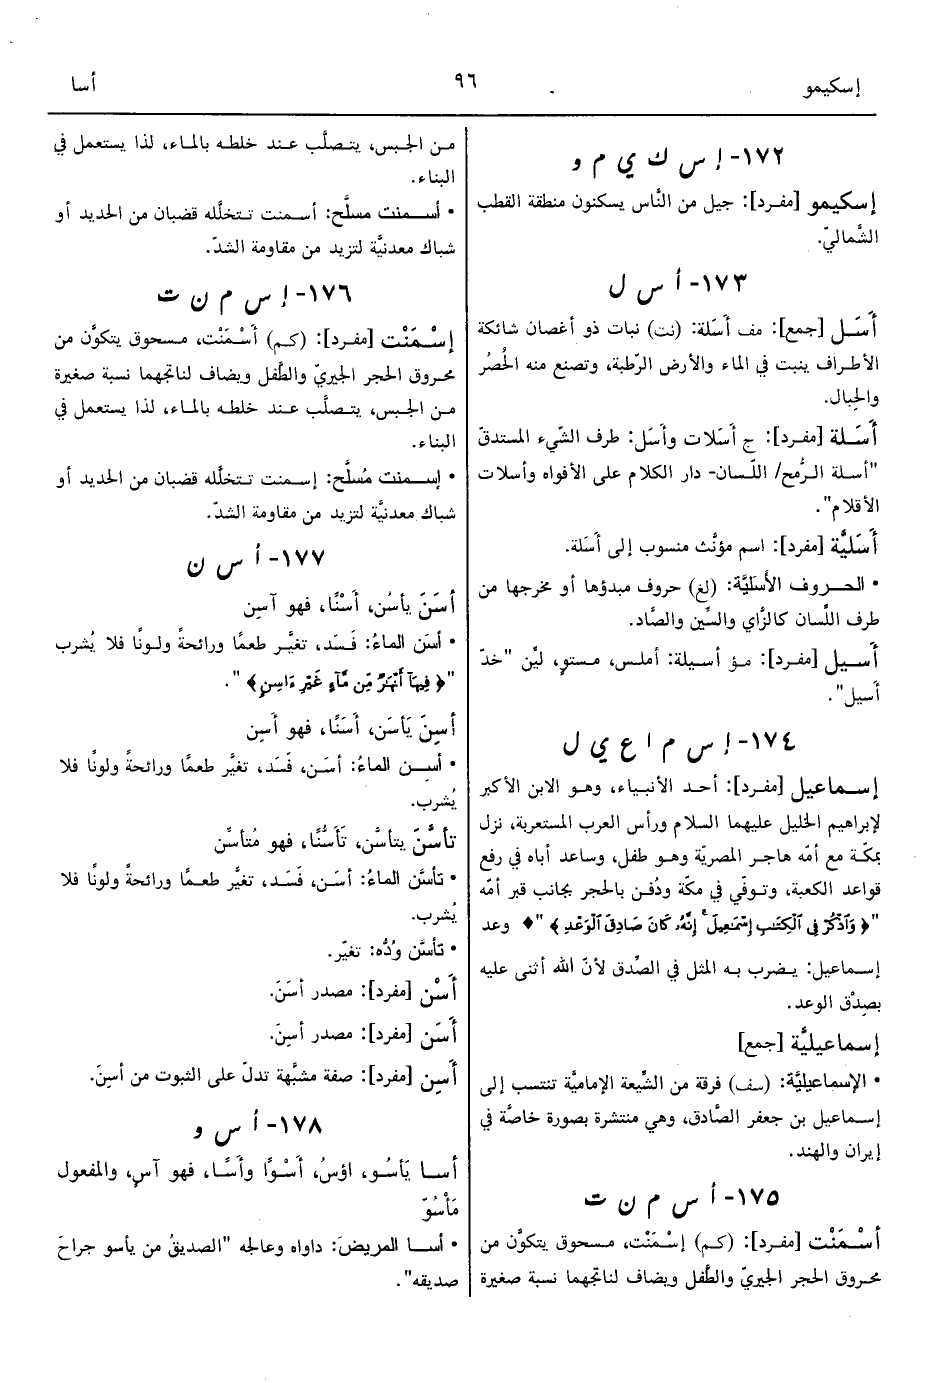 إسكيمو
٩٦
أسا
١٧٢- إ س ك ي م و
إسكيمو [مفرد]: جيل من النَّاس يسكنون منطقة القطب
الشَّماليّ.
١٧٣- أ س ل
أَسَل [جمع]: مف أَسَلة: (نت) نبات ذو أغصان شائكة
الأطراف ينبت في الماء والأرض الرّطبة، وتصنع منه الحُصُر
والحِبال.
أَسَلة [مفرد]: ج أَسَلات وأَسَل: طرف الشّيء المستدقّ
"أسلة الرُّمح/ اللّسان- دار الكلام على الأفواه وأسلات
الأقلام".
أَسَليَّة [مفرد]: اسم مؤنَّث منسوب إلى أَسَلة.
• الحروف الأَسَليَّة: (لغ) حروف مبدؤها أو مخرجها من
طرف اللِّسان كالزَّاي والسِّين والصَّاد.
أَسيل [مفرد]: مؤ أسيلة: أملس، مستوٍ، ليِّن "خدّ
أسيل".
١٧٤- إ س م ا ع ي ل
إسماعيل [مفرد]: أحد الأنبياء، وهو الابن الأكبر
لإبراهيم الخليل عليهما السلام ورأس العرب المستعربة، نزل
بمكّة مع أمّه هاجر المصريّة وهو طفل، وساعد أباه في رفع
قواعد الكعبة، وتوفّي في مكّة ودُفن بالحجر بجانب قبر أمّه
"﴿وَٱذْكُرْ فِي ٱلْكِتَٰبِ إِسْمَٰعِيلَ ۚ إِنَّهُۥ كَانَ صَادِقَ ٱلْوَعْدِ﴾" ♦ وعد
إسماعيل: يضرب به المثل في الصِّدق لأنّ الله أثنى عليه
بصِدْق الوعد.
إسماعيليَّة [جمع]
• الإسماعيليَّة: (سف) فرقة من الشِّيعة الإماميَّة تنتسب إلى
إسماعيل بن جعفر الصَّادق، وهي منتشرة بصورة خاصَّة في
إيران والهند.
١٧٥- أ س م ن ت
أَسْمَنْت [مفرد]: (كم) إِسْمَنْت، مسحوق يتكوَّن من
محروق الحجر الجيريّ والطَّفل ويضاف لناتجهما نسبة صغيرة
من الجبس، يتصلَّب عند خلطه بالماء، لذا يستعمل في
البناء.
• أسمنت مسلَّح: أسمنت تتخلَّله قضبان من الحديد أو
شباك معدنيَّة لتزيد من مقاومة الشدّ.
١٧٦- إ س م ن ت
إِسْمَنْت [مفرد]: (كم) أَسْمَنْت، مسحوق يتكوَّن من
محروق الحجر الجيريّ والطَّفل ويضاف لناتجهما نسبة صغيرة
من الجبس، يتصلَّب عند خلطه بالماء، لذا يستعمل في
البناء.
• إسمنت مُسلَّح: إسمنت تتخلَّله قضبان من الحديد أو
شباك معدنيَّة لتزيد من مقاومة الشدّ.
١٧٧- أ س ن
أسَنَ يأسُن، أَسْنًا، فهو آسِن
• أسَن الماءُ: فَسَد، تغيَّر طعمًا ورائحةً ولونًا فلا يُشرب
"﴿فِيهَآ أَنْهَٰرٌ مِّن مَّآءٍ غَيْرِ ءَاسِنٍ﴾".
أسِنَ يَأسَن، أَسَنًا، فهو أَسِن
• أسِن الماءُ: أسَن، فَسَد، تغيَّر طعمًا ورائحةً ولونًا فلا
يُشرب.
تأسَّنَ يتأسَّن، تَأَسُّنًا، فهو مُتأسِّن
• تأسَّن الماءُ: أسَن، فَسَد، تغيَّر طعمًا ورائحةً ولونًا فلا
يُشرب.
• تأسَّن وُدُّه: تغيّر.
أَسْن [مفرد]: مصدر أسَنَ.
أَسَن [مفرد]: مصدر أسِنَ.
أَسِن [مفرد]: صفة مشبَّهة تدلّ على الثبوت من أسِنَ.
١٧٨- أ س و
أسا يَأسُو، اؤسُ، أَسْوًا وأَسًا، فهو آسٍ، والمفعول
مَأْسُوّ
• أسا المريضَ: داواه وعالجه "الصديقُ من يأسو جراحَ
صديقه".